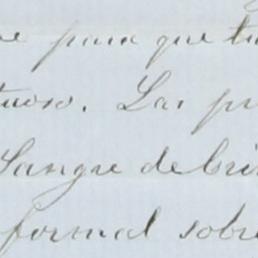 e para que tu
tuoso. Las pr
Sangre de bri
formal sobre